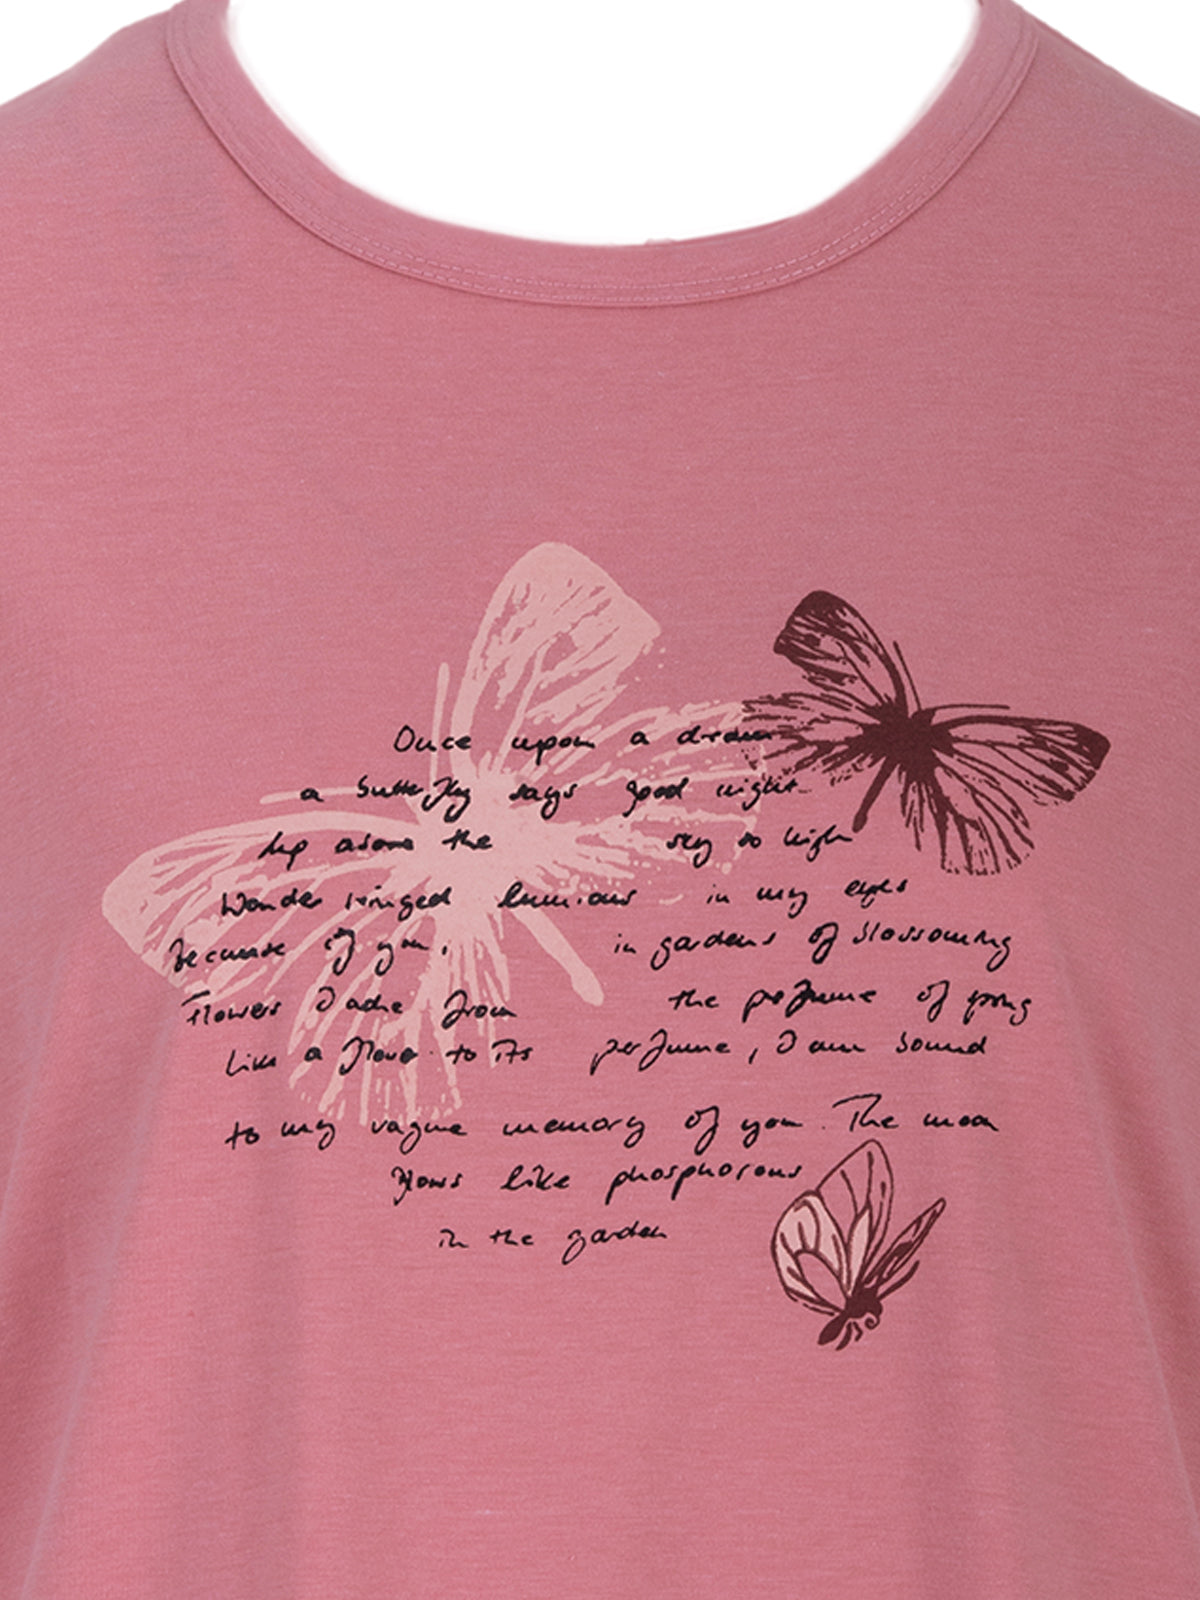 Once upon a dream
a butterfly says good night
Up above the sky so high
Wonder winged luminous in my eyes
because of you, in gardens of blossoming
Flowers I ache from the perfume of spring
Like a flower to its perfume, I am bound
to my vague memory of you. The moon
glows like phosphorous
in the garden